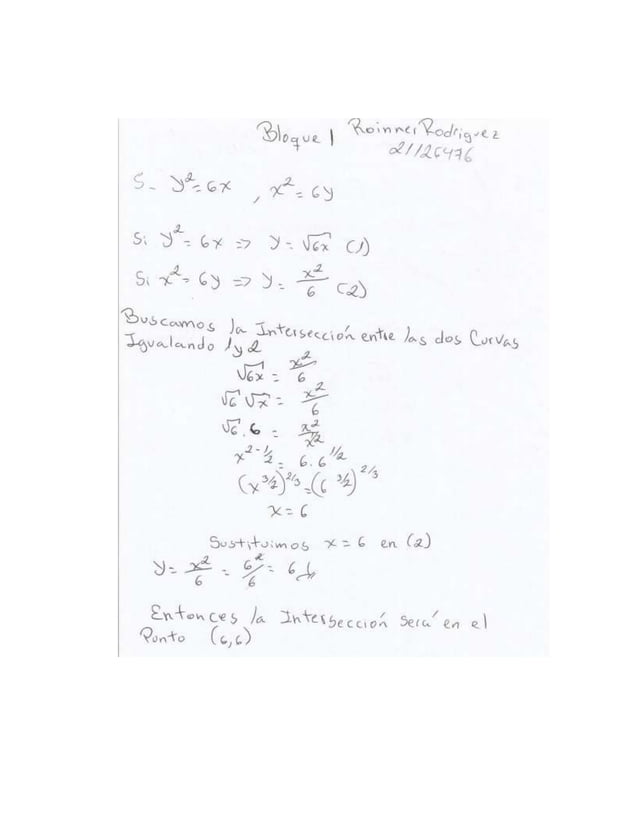 Bloque 1 Roinner Rodriguez
21126476
5- y²=6x , x²=6y
Si y²=6x => y=√6x (1)
Si x²=6y => y= x²/6 (2)
Buscamos la Intersección entre las dos Curvas
Igualando 1 y 2
√6x = x²/6
√6 √x = x²/6
√6 . 6 = x²/x^1/2
x^2-1/2 = 6.6^1/2
(x^3/2)^2/3 = (6^3/2)^2/3
x=6
Sustituimos x=6 en (2)
y= x²/6 = 6²/6 = 6
Entonces la Intersección será en el
Punto (6,6)